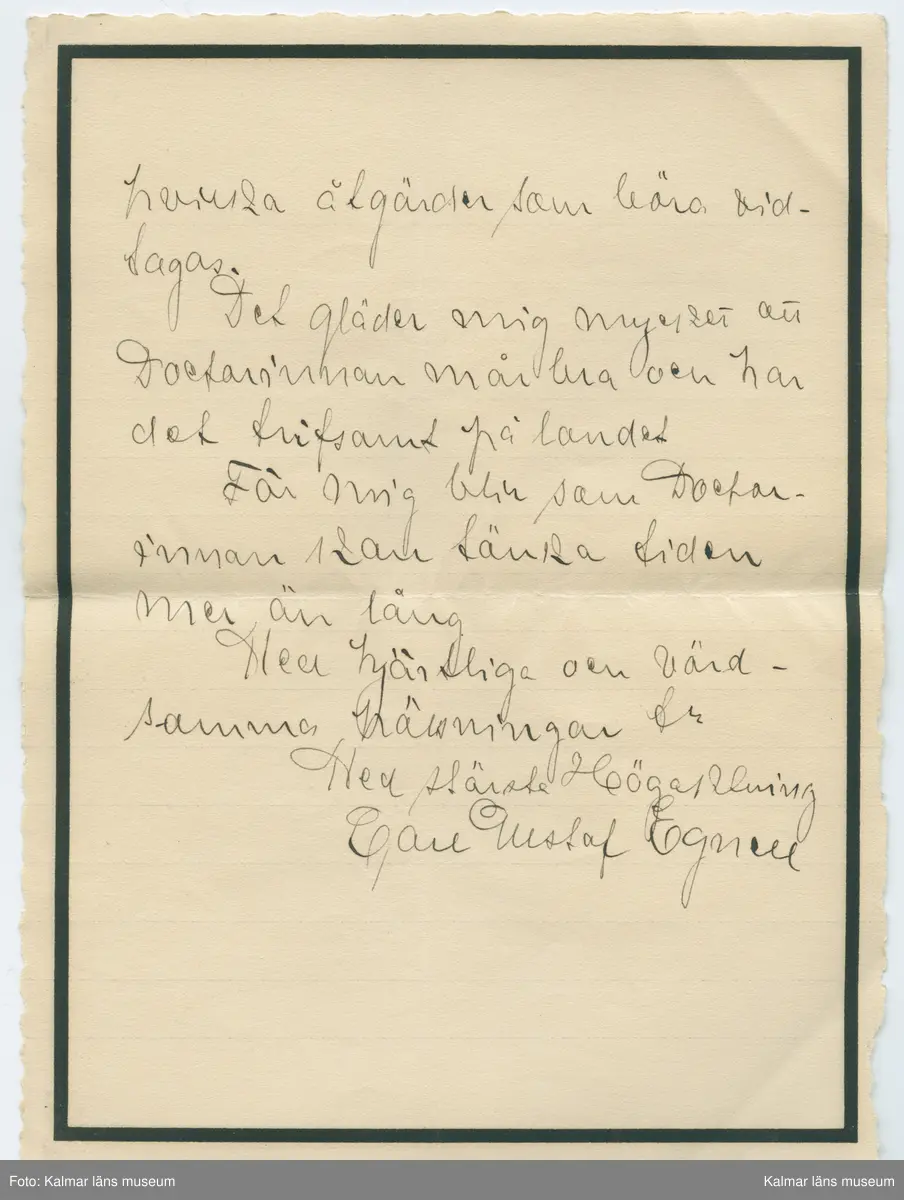 hvilka åtgärder som böra vid-
tagas.
Det gläder mig mycket att
Doctorinnan mår bra och har
det trifsamt på landet
För mig blir som Doctor-
innan kan tänka tiden
mer än lång
Med hjärtliga och vörd-
samma hälsningar fr
Med största Högaktning
Carl Gustaf Egnell
Foto: Kalmar läns museum
Kalmar läns museum